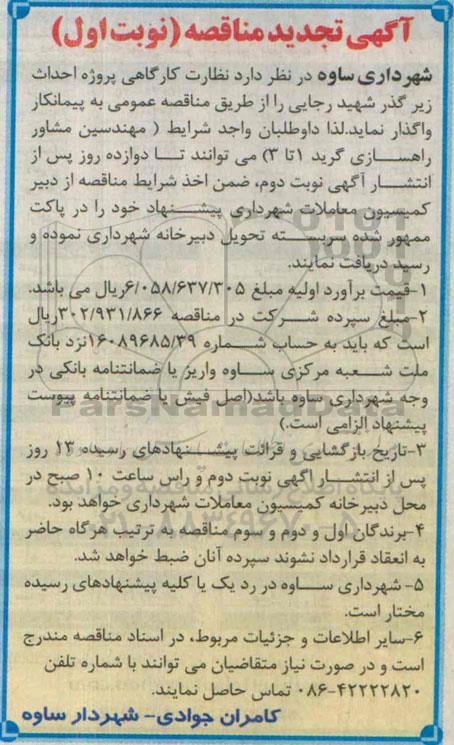 آگهی تجدید مناقصه (نوبت اول)
شهرداری ساوه در نظر دارد نظارت کارگاهی پروژه احداث
زیر گذر شهید رجایی را از طریق مناقصه عمومی به پیمانکار
واگذار نماید.لذا داوطلبان واجد شرایط ( مهندسین مشاور
راهسازی گرید ۱تا ۳) می توانند تا دوازده روز پس از
انتشار آگهی نوبت دوم، ضمن اخذ شرایط مناقصه از دبیر
کمیسیون معاملات شهرداری پیشنهاد خود را در پاکت
ممهور شده سربسته تحویل دبیرخانه شهرداری نموده و
رسید دریافت نمایند.
۱-قیمت برآورد اولیه مبلغ ۶/۰۵۸/۶۳۷/۳۰۵ریال می باشد.
۲-مبلغ سپرده شرکت در مناقصه ۳۰۲/۹۳۱/۸۶۶ریال
است که باید به حساب شماره ۱۶۰۸۹۶۸۵/۳۹نزد بانک
ملت شعبه مرکزی ساوه واریز یا ضمانتنامه بانکی در
وجه شهرداری ساوه باشد(اصل فیش یا ضمانتنامه پیوست
پیشنهاد الزامی است.)
۳-تاریخ بازگشایی و قرائت پیشنهادهای رسیده ۱۳ روز
پس از انتشار آگهی نوبت دوم و راس ساعت ۱۰ صبح در
محل دبیرخانه کمیسیون معاملات شهرداری خواهد بود.
۴-برندگان اول و دوم و سوم مناقصه به ترتیب هرگاه حاضر
به انعقاد قرارداد نشوند سپرده آنان ضبط خواهد شد.
۵- شهرداری ساوه در رد یک یا کلیه پیشنهادهای رسیده
مختار است.
۶-سایر اطلاعات و جزئیات مربوط، در اسناد مناقصه مندرج
است و در صورت نیاز متقاضیان می توانند با شماره تلفن
۰۸۶-۴۲۲۲۲۸۲۰ تماس حاصل نمایند.
کامران جوادی- شهردار ساوه
ParsNamadData